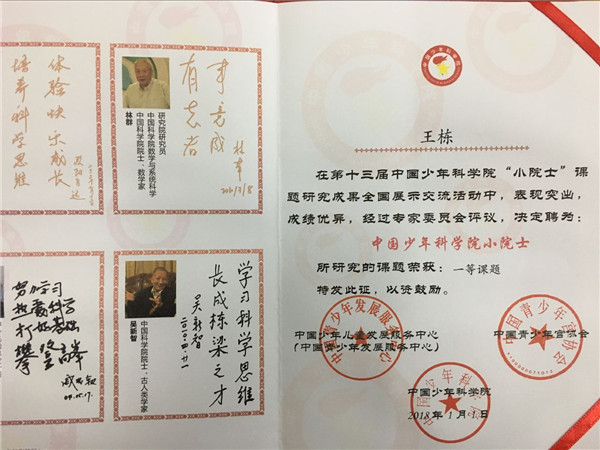 体验快乐成长
培养科学思维
有志者
事竟成
林群
研究院研究员
中国科学院数学与系统科学
中国科学院院士、数学家
林群
努力学习
热爱科学
打好基础
攀登高峰
学习科学思维
长成栋梁之才
吴新智
二〇一〇.四.二一
中国科学院院士、古人类学家
吴新智
王栋
在第十三届中国少年科学院“小院士”课
题研究成果全国展示交流活动中，表现突出，
成绩优异，经过专家委员会评议，决定聘为：
中国少年科学院小院士
所研究的课题荣获：一等课题
特发此证，以资鼓励。
中国少年儿童发展服务中心
（中国青少年发展服务中心）
中国青少年宫协会
中国少年科学院
2018年1月1日